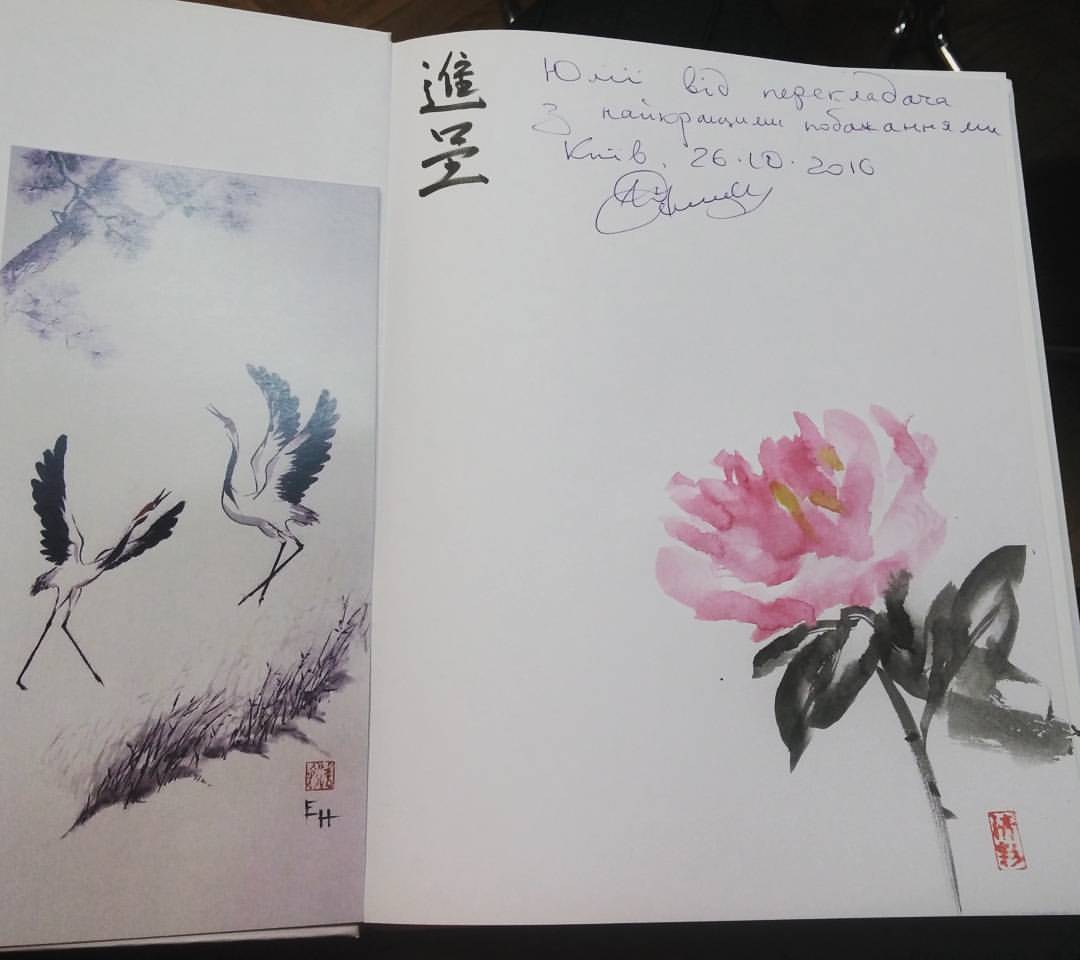 進呈
Юлії від перекладача
З найкращими побажаннями
Київ, 26.10.2016
EH